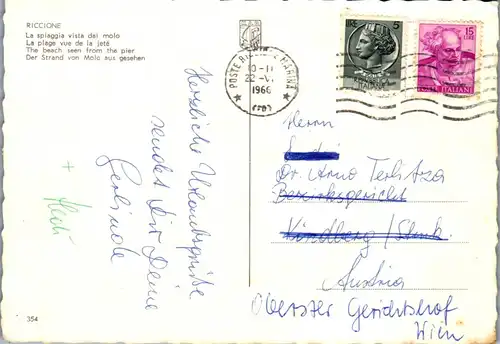 RICCIONE
La spiaggia vista dal molo
La plage vue de la jeté
The beach seen from the pier
Der Strand von Molo aus gesehen
POSTE RICCIONE MARINA
10-11
22.V.
1966
(FO)
LIRE 5
ITALIANE
15
LIRE
POSTE ITALIANE
Herzliche Urlaubsgrüße
sendet Dir Deine
Gerlinde
+ Heidi
Herrn
Dr. Arno
Bezirksgericht
Kindberg / Stmk.
Austria
Oberster Gerichtshof
Wien
354